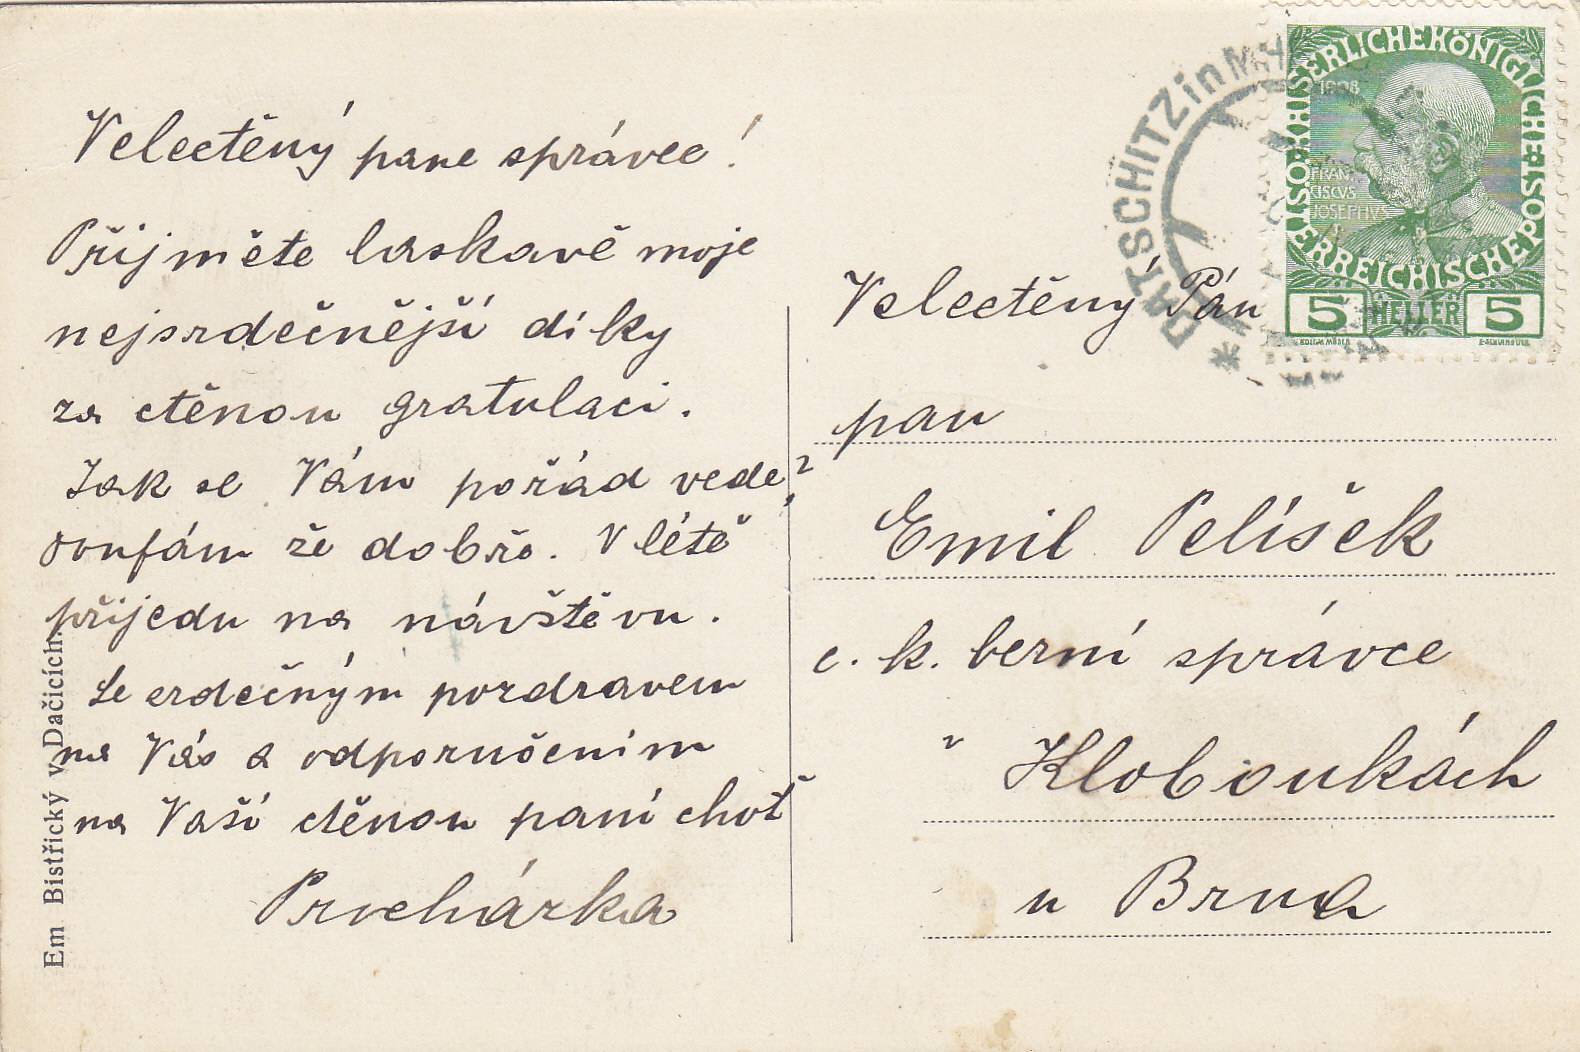 Velectěný pane správce!
Přijměte laskavě moje
nejsrdečnější díky
za ctěnou gratulaci.
Jak se Vám pořád vede?
doufám že dobře. V létě
přijedu na návštěvu.
Se srdečným pozdravem
na Vás a odporučením
na Vaší ctěnou paní choť
Em Bistřický v Dačicích.
DATSCHITZ in MÄH
KAISERLICHE KÖNIGLICHE ÖSTERREICHISCHE POST
1908
FRAN
CISCVS
JOSEPHVS
5 HELLER 5
Velectěný Pán
pan
Emil Pelíšek
c. k. berní správce
v Kloboukách
u Brna